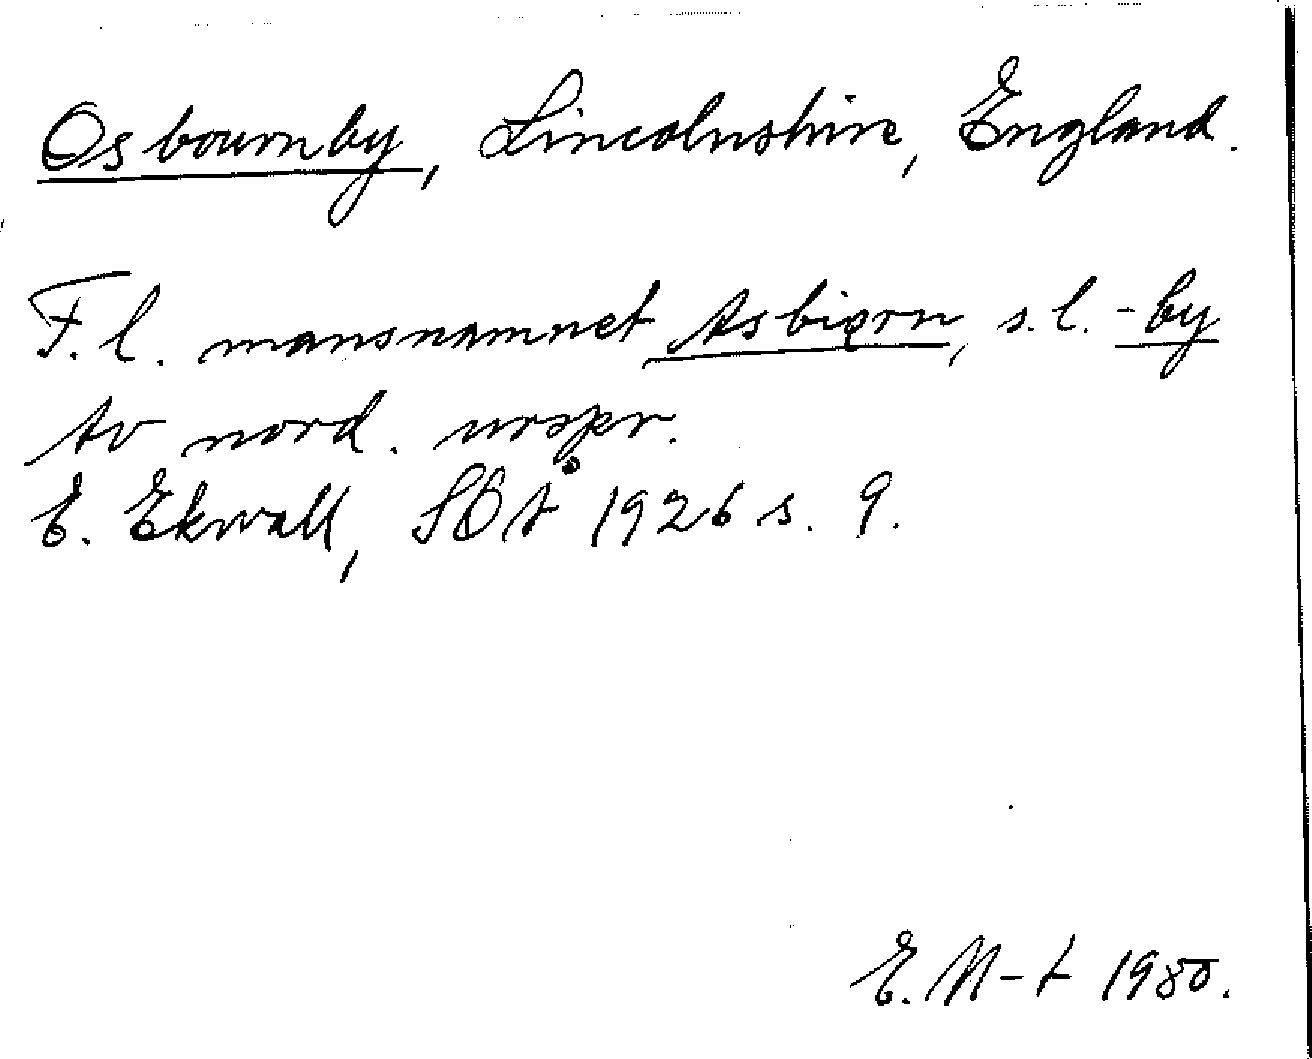 Osbournby, Lincolnshire, England.
F.l. mansnamnet Asbiǫrn, s.l. -by
Av nord. urspr.
E. Ekwall, SOÅ 1926 s. 9.
E. M-t 1980.